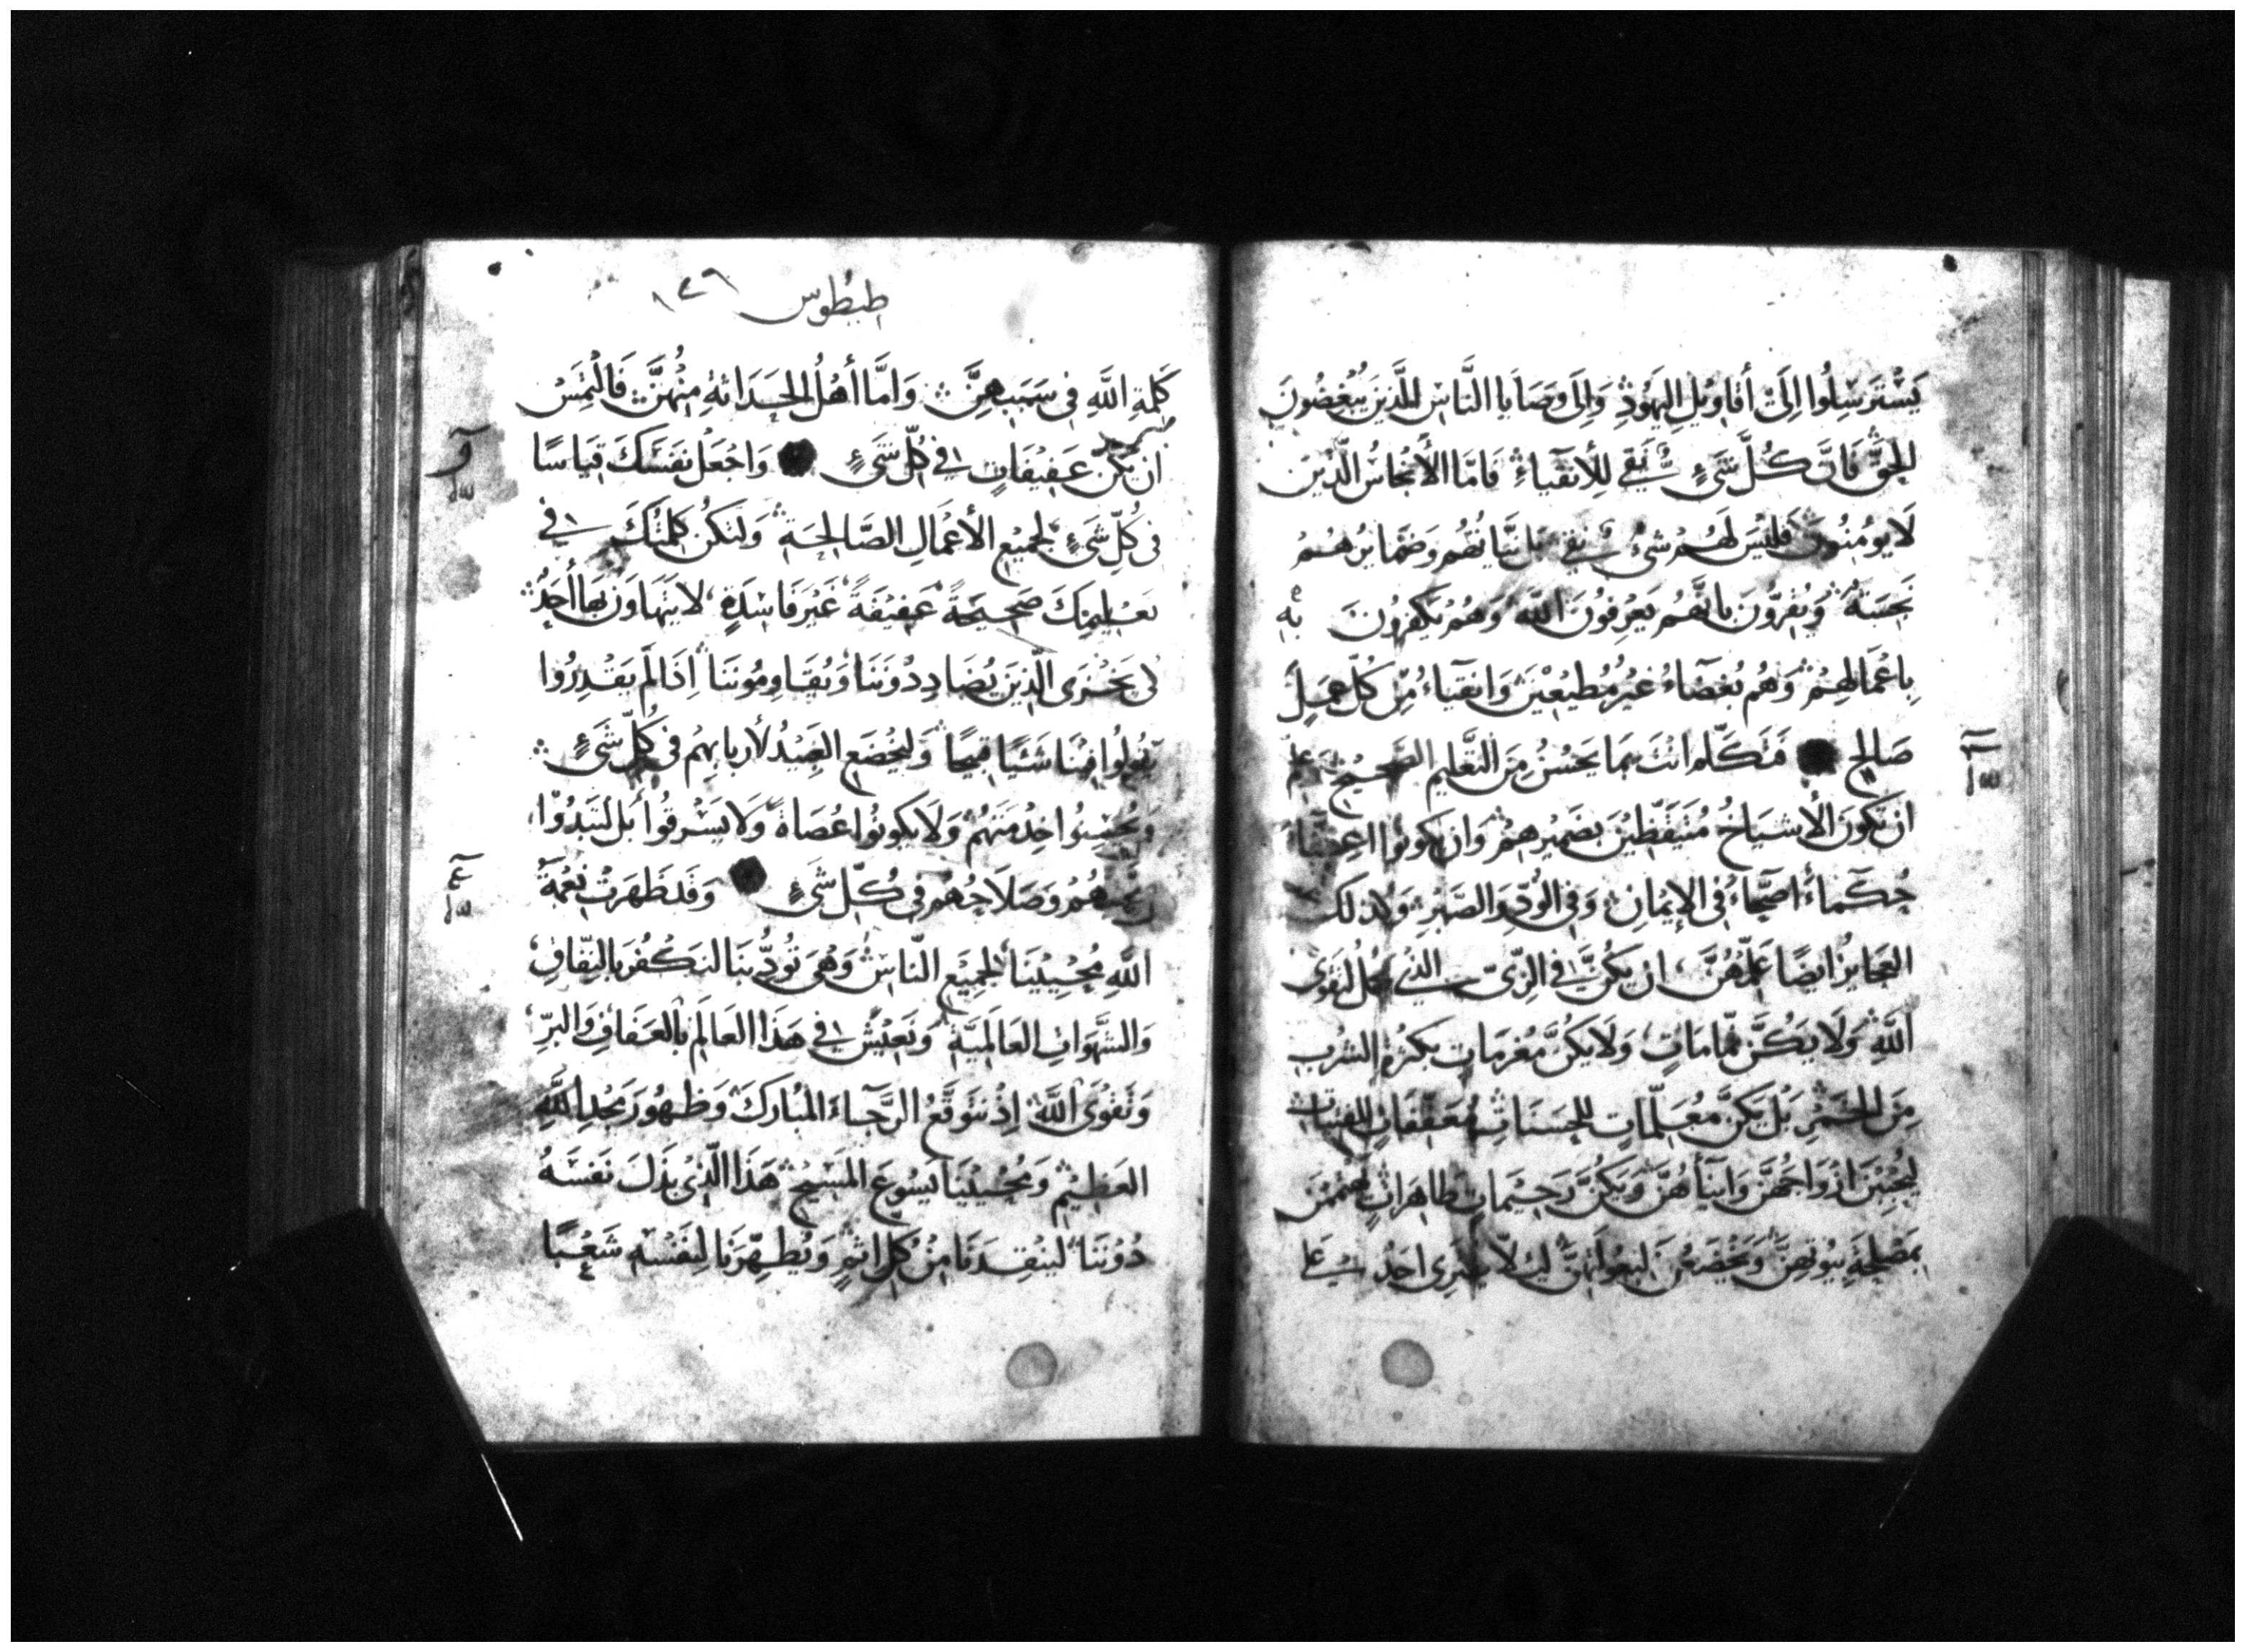 يَسْتَرسِلُوا اِلَىَ أقاوِيلِ اليَهُوْدِ وَاِلَى وَصَايا النَّاسِ الَّذِينَ يُبْغِضُونَ
الحَقَّ فَانَّ كُلَّ شَىءٍ نَقِي لِلأنقِيَاءِ فَامَّا الأَنْجَاسُ الَّذِينَ
لَا يُومِنُونَ فَلَيْسَ لَهُمْ شىٌ نقى بل نيّاتُهُم وضَمايرُهُمْ
نَجِسَةٌ وَيُقِرُّونَ بانَّهُم يَعْرِفُونَ اللَّه وَهُمْ يَكفُرُونَ بِهِ
بِاعْمَالِهِمْ وَهُم بُغَضَاءُ غيرُ مُطِيعِيْنَ وَانقِيَاءُ مِنْ كُلِّ عَمَلٍ
صَالِحٍ فَتَكَلَّم انتَ بمَا يَحْسُنُ مِنَ التَّعْلِيمِ الصَّحِيْحِ عَلِّم
ان تكُونَ الأشيَاخُ مُتَيَقِّظِيْنَ بضَمِيرِهِمْ وَان يَكونُوا اعِفَّاءَ
حُكَمَاءَ اصِحَّاءَ فِى الإيْمَانِ وَفى الوُدِّ وَالصَّبْرِ وَلذلك
العَجايزُ ايضًا عَلِّمْهُنَّ ان يَكُنَّ فِى الزِّىّ الذي يحل لتقوى
اللَّهِ وَلَا يَكُنَّ نمَّامَاتٍ وَلَا يَكُنَّ مُغْرَمَاتٍ بكثرةِ الشرب
مِنَ الخَمْرِ بَل يَكُنَّ مُعَلِّمَاتٍ للحَسَنَاتِ مُعَفِّفَاتٍ للفتيات
لِيُحْبِبْنَ ازْوَاجَهُنَّ وَابنَاهُنَّ وَيَكُنَّ رَحِيْمَاتٍ طَاهِرَاتٍ يهتممن
بمَصْلَحَةِ بيُوتِهنَّ وَيَخْضَعْنَ لبعُولَتِهِنَّ لِيَلّا يفترى احَدٌ عَلى
طيطوس ١٧٦
كَلِمَةِ اللَّهِ فى سَبَبهِنَّ وَامَّا أهْلُ الحَدَاثَةِ مِنْهُنَّ فَالْتَمِسْ
ان يكنّ عَفِيْفَاتٍ في كُلِّ شَىءٍ وَاجْعَلْ نفسَكَ قِيَاسًا
فى كُلِّ شَىءٍ لجمِيْعِ الأعْمَالِ الصَّالِحَةِ وَلتَكُن كَلِمَتُكَ فى
تعْلِيمِكَ صَحِيحَةً عَفِيْفَةً غَيْرَ فَاسِدَةٍ لا يَتَهَاوَن بَهَا أَحَدٌ
لِى يَخْزَى الَّذِينَ يُضَادِدُوْنَنَا وَيُقَاوِمُونَنَا اِذَا لَم يَقْدِرُوا
يَقُولُوا فِيْنَا شَيْيًا قَبِيْحًا وَليَخْضَع العَبِيْدُ لأربابِهِمْ فى كُلِّ شَىءٍ
وَيُحْسِنُوا خِدْمَتَهُمْ وَلَا يكونُوا عُصَاةً وَلَا يَسْرِقُوا بَل لِيُبْدُوْا
وَصَلَاحُهم فى كُلِّ شَىءٍ وَقَد ظَهَرَتْ نِعْمَةُ
اللَّهِ مُحْيِيْنَا لجمِيْعِ النَّاسِ وَهِىَ تُوَدِّبُنَا لنَكْفُرَ بالنِّفَاقِ
وَالشَّهَوَاتِ العَالَمِيَّةِ وَنَعِيْشُ فى هَذَا العَالَمِ بالعَفَافِ وَالبِرِّ
وَتَقْوَى اللَّهِ اِذْ نَتَوَقَّعُ الرَّجَاءَ المُبَارَكَ وَظهُورَ مَجْدِ اللَّهِ
العَظِيْمِ وَمُحْيِيْنَا يَسُوعَ المَسِيْحِ هَذَا الَّذِىْ بَذَلَ نَفسَهُ
دُوْنَنَا ليُنْقِدَنَا مِنْ كُلِّ اثمٍ وَيُطَهِّرَنَا لِنَفسْهِ شَعْبًا